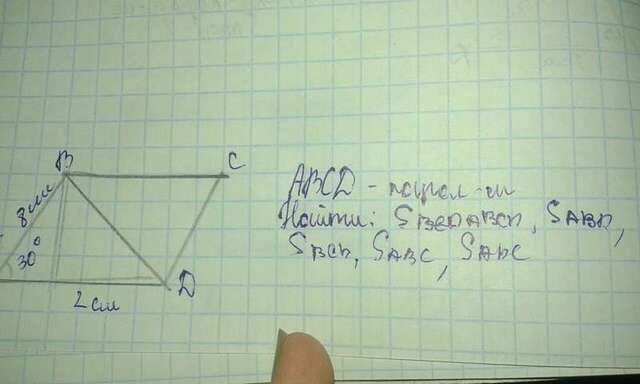 B
C
8 см
30°
2 см
D
ABCD - парал-м
Найти: SABCD, SABD,
SBCD, SABC, SADC